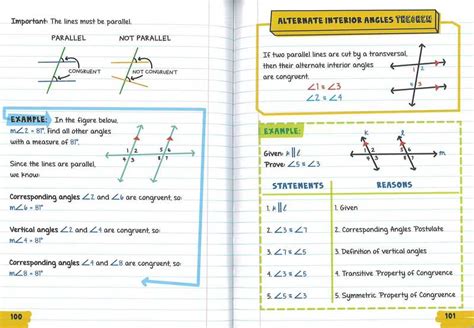 Important: The lines must be parallel.
PARALLEL
NOT PARALLEL
CONGRUENT
NOT CONGRUENT
EXAMPLE: In the figure below,
m∠2 = 81°. Find all other angles
with a measure of 81°.
1 2
4 3
5 6
8 7
Since the lines are parallel,
we know:
Corresponding angles ∠2 and ∠6 are congruent, so:
m∠6 = 81°
Vertical angles ∠2 and ∠4 are congruent, so:
m∠4 = 81°
Corresponding angles ∠4 and ∠8 are congruent, so:
m∠8 = 81°
100
ALTERNATE INTERIOR ANGLES THEOREM
If two parallel lines are cut by a transversal,
then their alternate interior angles
are congruent.
∠1 ≅ ∠3
∠2 ≅ ∠4
1 2
EXAMPLE:
Given: k ∥ ℓ
Prove: ∠5 ≅ ∠3
k
ℓ
m
1 2
4 3
5 6
8 7
STATEMENTS
REASONS
1. k ∥ ℓ
1. Given
2. ∠3 ≅ ∠7
2. Corresponding Angles Postulate
3. ∠7 ≅ ∠5
3. Definition of vertical angles
4. ∠3 ≅ ∠5
4. Transitive Property of Congruence
5. ∠5 ≅ ∠3
5. Symmetric Property of Congruence
101